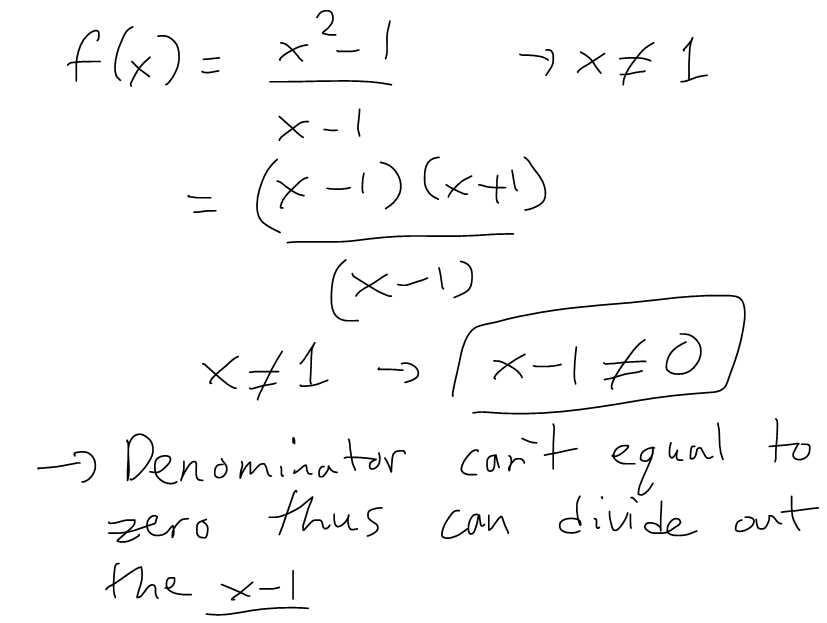 f(x) = x² - 1 → x ≠ 1
x - 1
= (x - 1) (x + 1)
(x - 1)
x ≠ 1 → x - 1 ≠ 0
→ Denominator can't equal to
zero thus can divide out
the x - 1